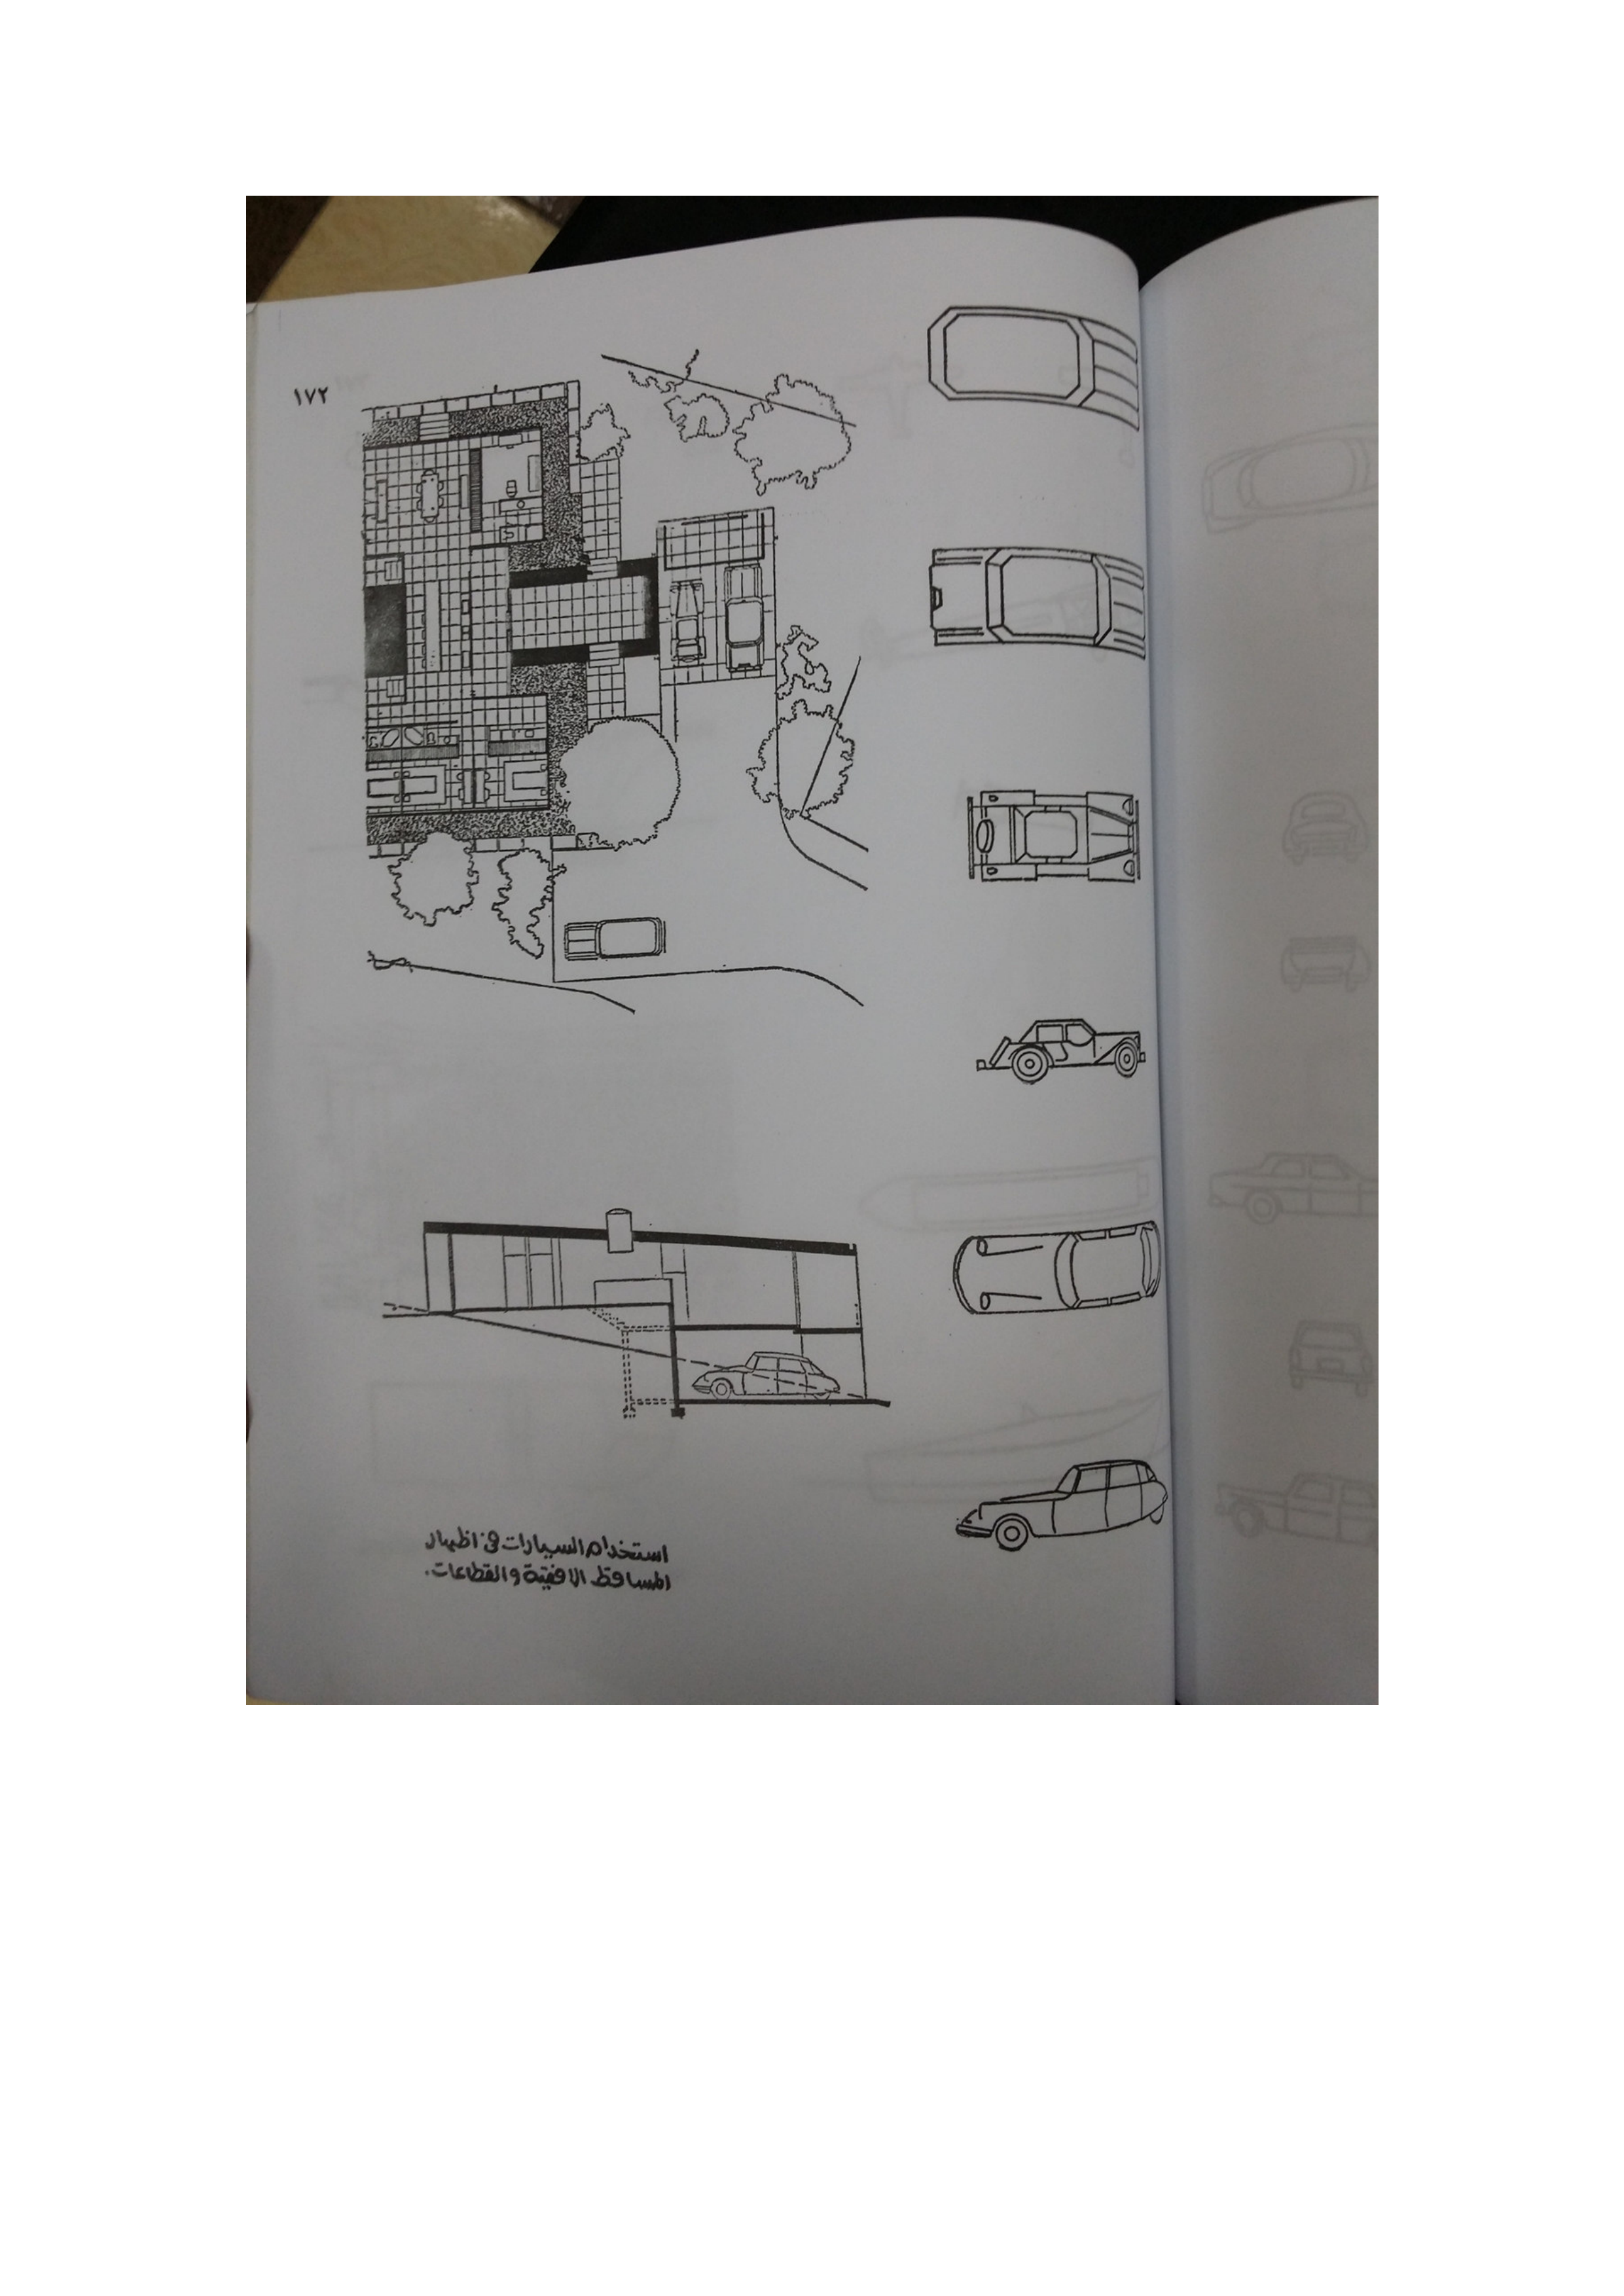 ١٧٢
استخدام السيارات في اظهار
المساقط الافقية والقطاعات.